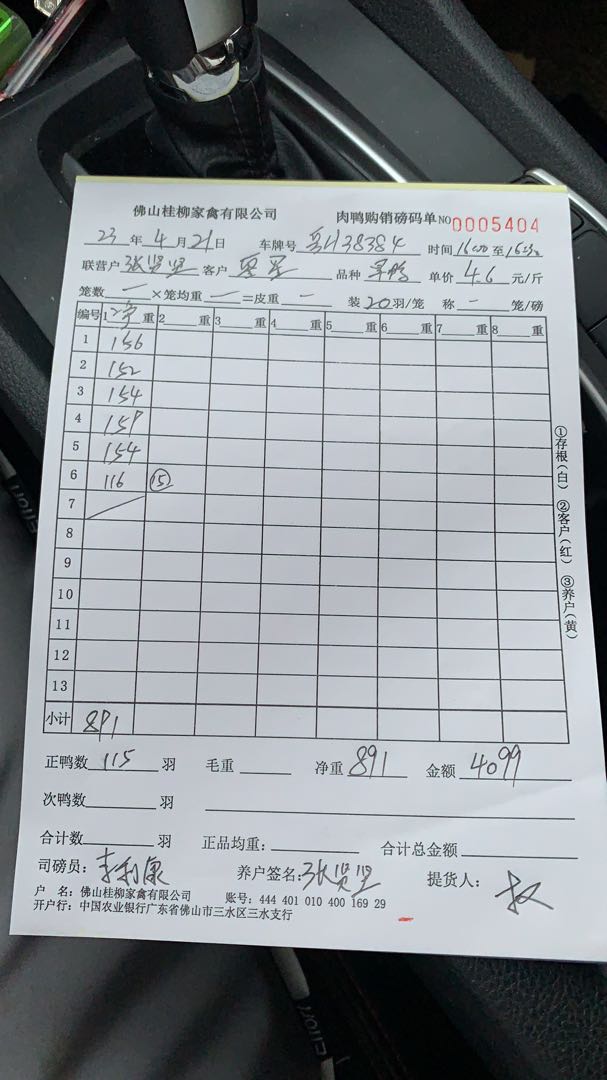 佛山桂柳家禽有限公司 肉鸭购销磅码单 NO 0005404
23 年 4 月 21 日 车牌号 38384 时间 至
联营户 张贤坚 客户 品种 单价 4.6 元/斤
笼数 一 ×笼均重 一 =皮重 一 装 20 羽/笼 称 一 笼/磅
编号 1 净 重 2 重 3 重 4 重 5 重 6 重 7 重 8 重
1 156
2 152
3 154
4 159
5 154
6 116 ⑮
7
8
9
10
11
12
13
小计 891
正鸭数 115 羽 毛重 净重 891 金额 4099
次鸭数 羽
合计数 羽 正品均重: 合计总金额
司磅员: 李利康 养户签名: 张贤坚 提货人:
户 名: 佛山桂柳家禽有限公司 账号: 444 401 010 400 169 29
开户行: 中国农业银行广东省佛山市三水区三水支行
①存根(白) ②客户(红) ③养户(黄)